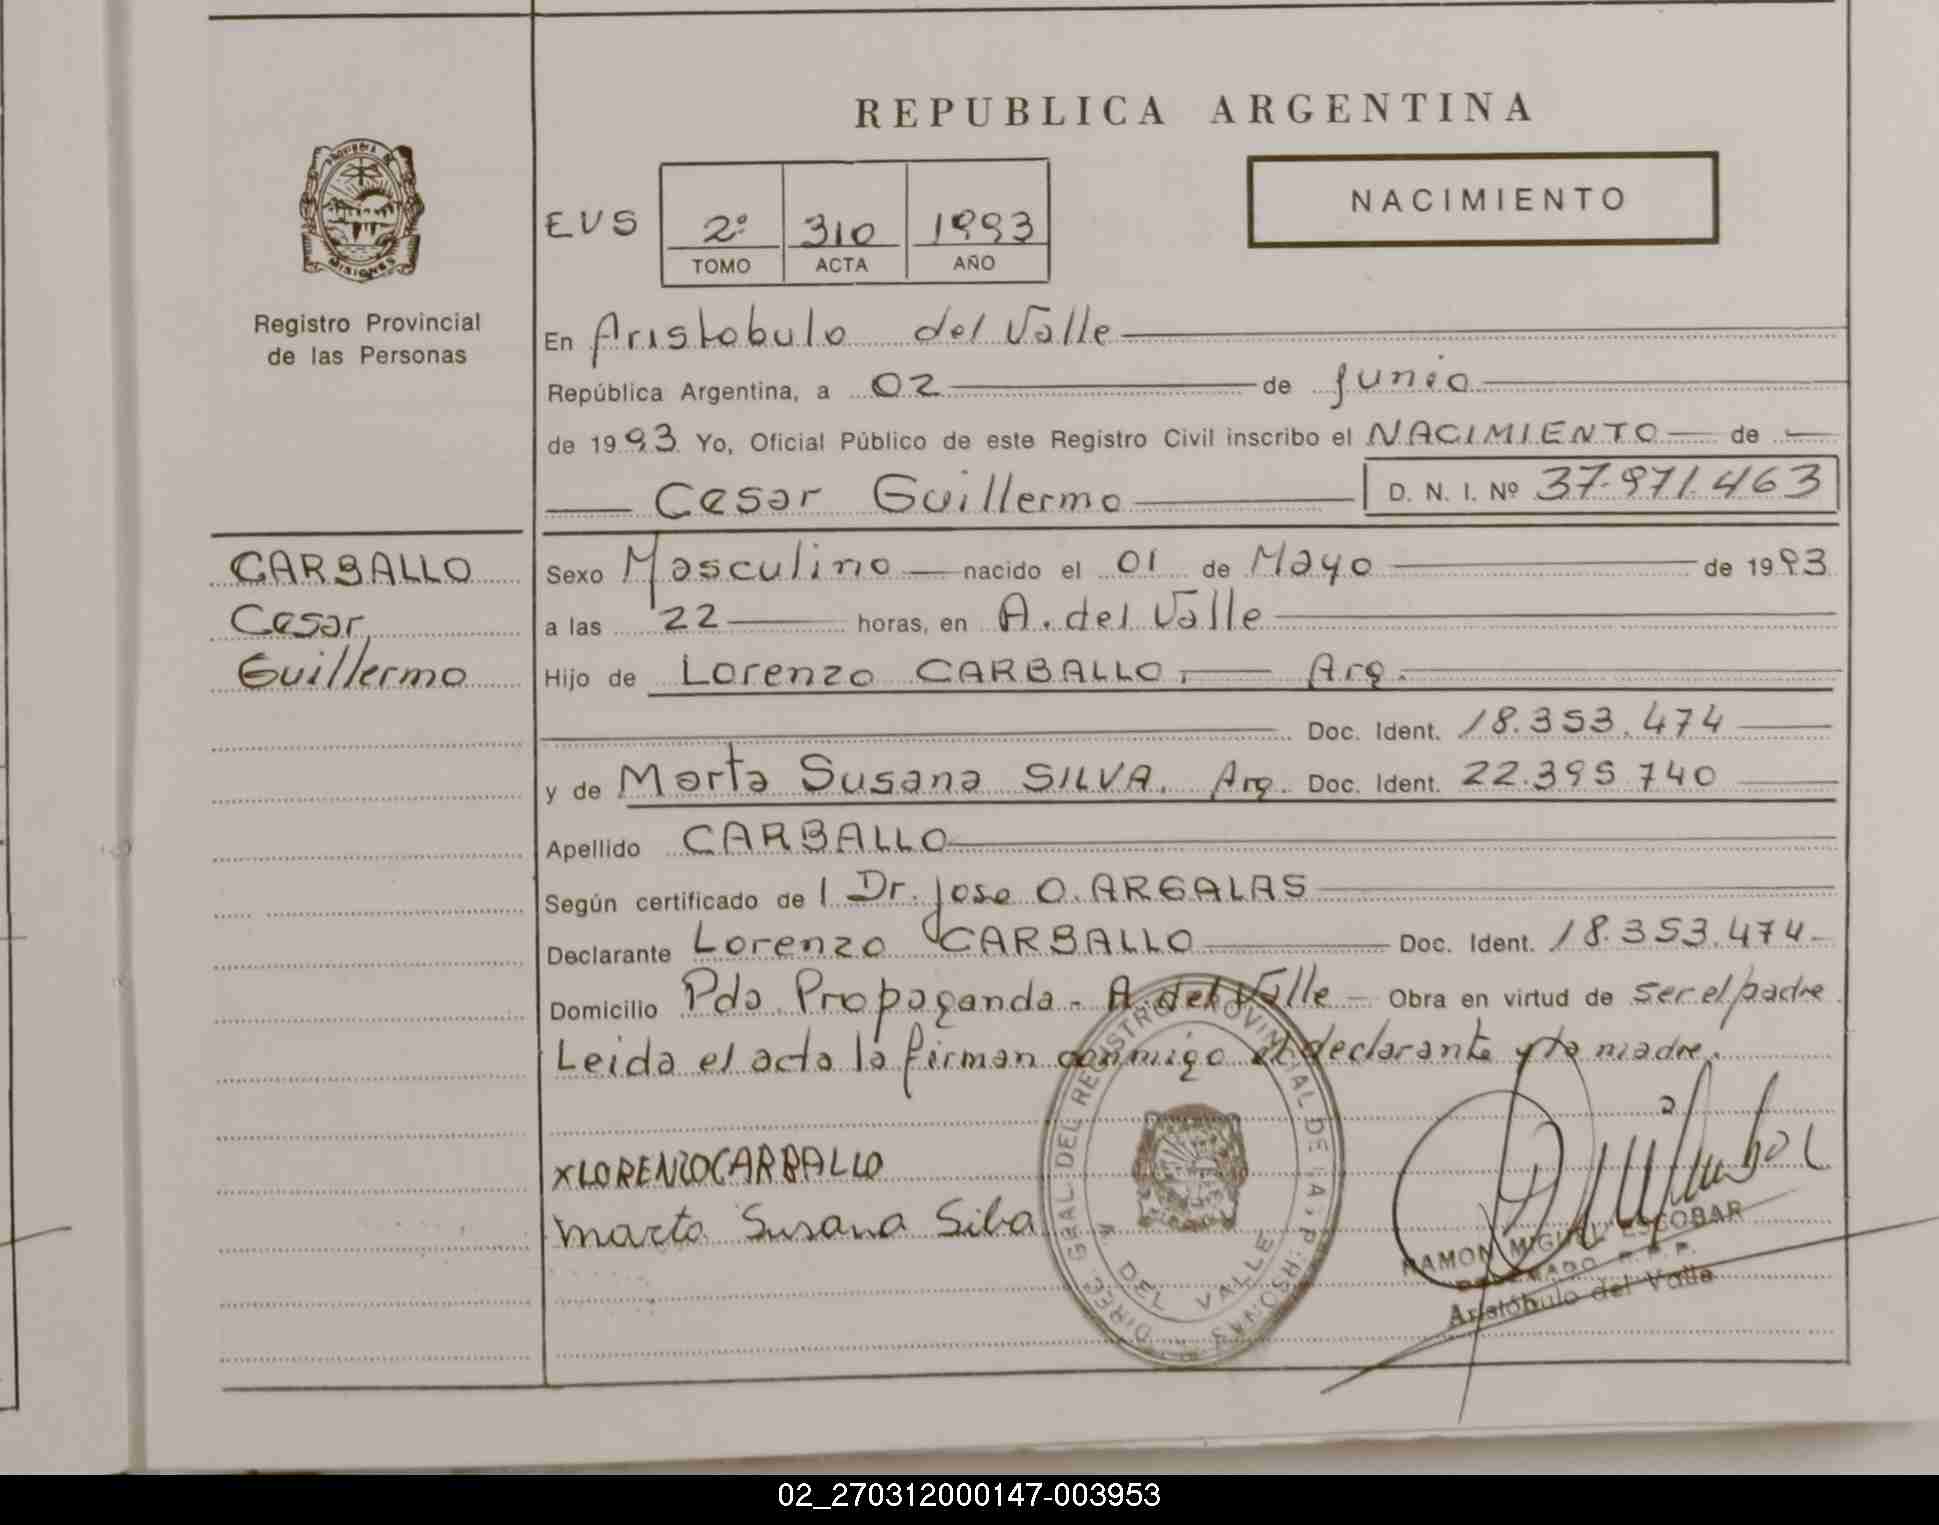 REPUBLICA ARGENTINA
NACIMIENTO
PROVINCIA DE
MISIONES
Registro Provincial
de las Personas
EVS 2º 310 1993
TOMO ACTA AÑO
En Aristobulo del Valle
República Argentina, a 02 de junio
de 1993 Yo, Oficial Público de este Registro Civil inscribo el NACIMIENTO de
Cesar Guillermo D. N. I. Nº 37.971.463
CARBALLO
Cesar
Guillermo
Sexo Masculino nacido el 01 de Mayo de 1993
a las 22 horas, en A. del Valle
Hijo de Lorenzo CARBALLO, Arg.
Doc. Ident. 18.353.474
y de Marta Susana SILVA. Arg. Doc. Ident. 22.395.740
Apellido CARBALLO
Según certificado de l Dr. Jose O. ARGALAS
Declarante Lorenzo CARBALLO Doc. Ident. 18.353.474
Domicilio Pdo. Propaganda - A. del Valle - Obra en virtud de ser el padre
Leida el acta la firman conmigo el declarante y la madre.
XLORENZO CARBALLO
Marta Susana Silva
DIREC. GRAL DEL REGISTRO PROVINCIAL DE LA P. PERSONAS
A DEL VALLE
RAMON MIGUEL ESCOBAR
DELEGADO R.P.P.
Aristóbulo del Valle
02_270312000147-003953